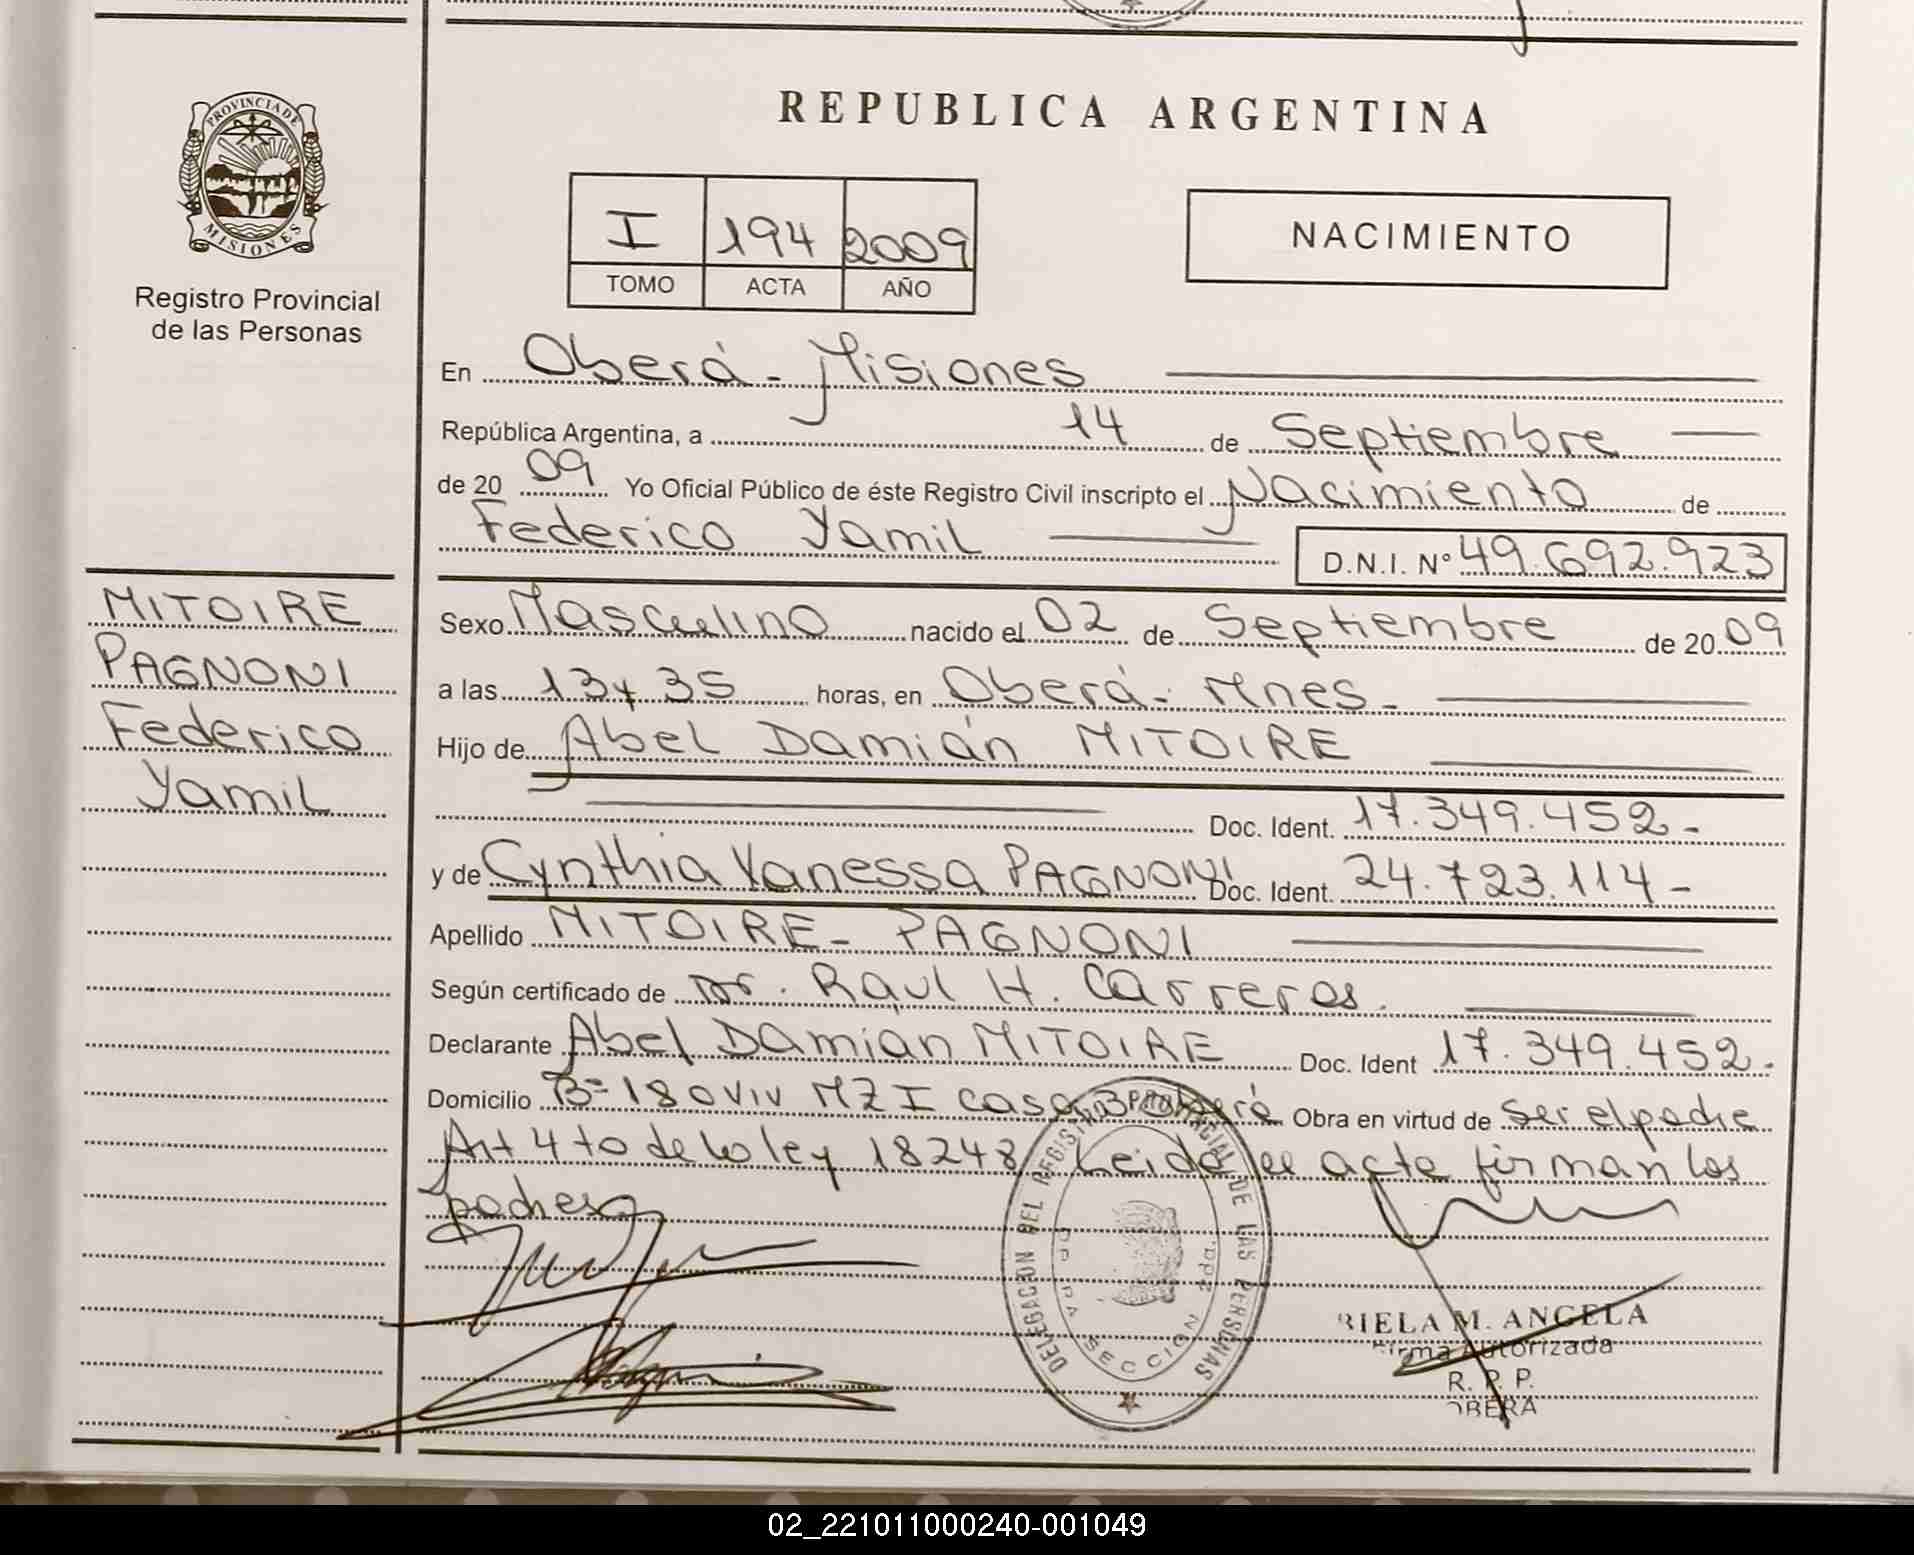 REPUBLICA ARGENTINA
PROVINCIA DE
MISIONES
Registro Provincial
de las Personas
I 194 2009
TOMO ACTA AÑO
NACIMIENTO
En Oberá - Misiones
República Argentina, a 14 de Septiembre
de 20 09 Yo Oficial Público de éste Registro Civil inscripto el Nacimiento de
Federico Yamil D.N.I. Nº 49.692.923
MITOIRE
PAGNONI
Federico
Yamil
Sexo Masculino nacido el 02 de Septiembre de 20 09
a las 13 y 35 horas, en Oberá - Mnes -
Hijo de Abel Damián MITOIRE
Doc. Ident. 17.349.452 -
y de Cynthia Vanessa PAGNONI Doc. Ident. 24.723.114 -
Apellido MITOIRE - PAGNONI
Según certificado de Dr. Raúl H. Carreras.
Declarante Abel Damián MITOIRE Doc. Ident 17.349.452.
Domicilio Bº 180 viv MZ I casa 3 Oberá Obra en virtud de ser el padre
Art 4 to de la ley 18248 Leida el acta firman los
padres
DELEGACION DEL REGISTRO PROVINCIAL DE LAS PERSONAS
SECCION 2da.
BIELA M. ANGELA
Firma Autorizada
R. P. P.
OBERA
02_221011000240-001049